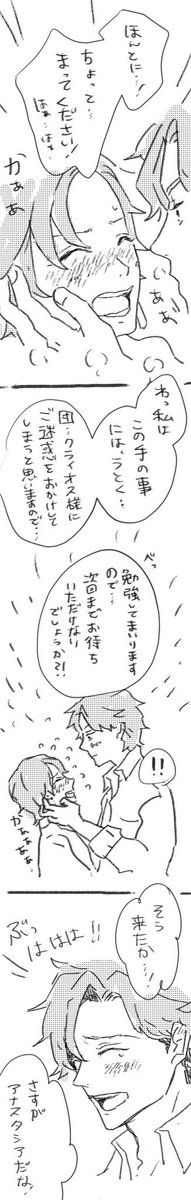 ほんとに…!
ちょっと…
まってください!
はぁ…はぁ…
かぁぁ
あぁ
わっ私は
この手の事
には、うとく…
団…クライオス様に
ご迷惑をおかけして
しまうと思いますので…
べっ
勉強してまいります
ので…
次回までお待ち
いただけない
でしょうか?!
!!
かぁぁぁぁ
そう
来たか…
ぶっ
ははは!!
さすが
アナスタシアだな